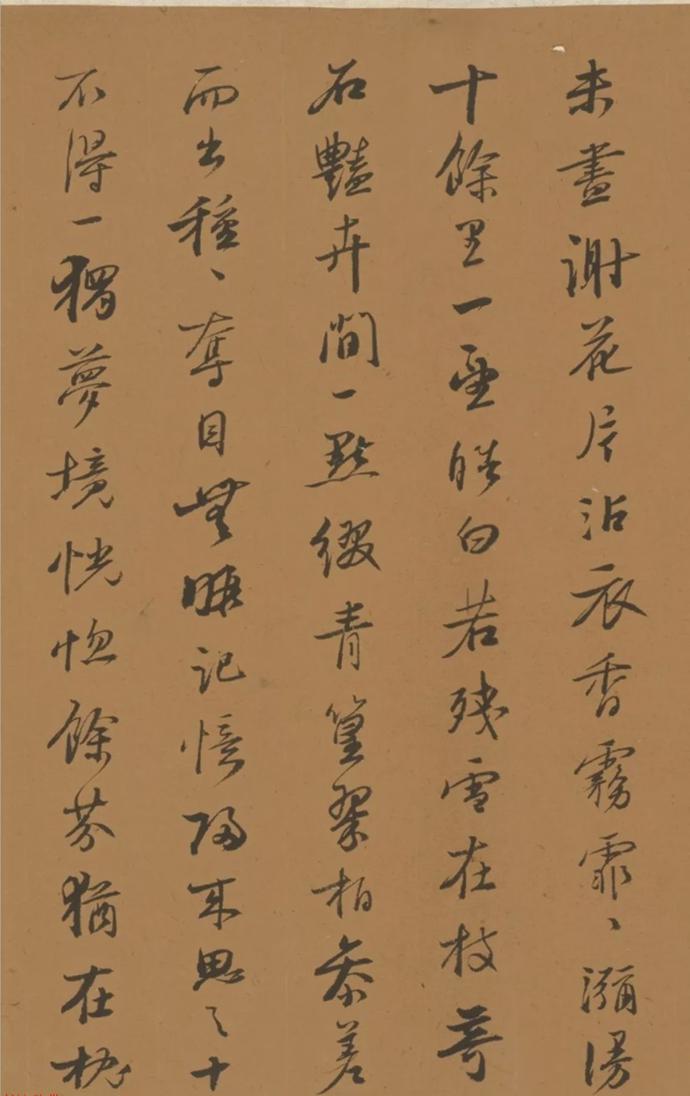 未盡謝花片沾衣香霧霏〻瀰漫
十餘里一望皓白若殘雪在枝奇
石艷卉間一點綴青篁翠柏參差
而出種〻奪目無暇記憶歸来思之十
不得一獨夢境恍惚餘芬猶在枕